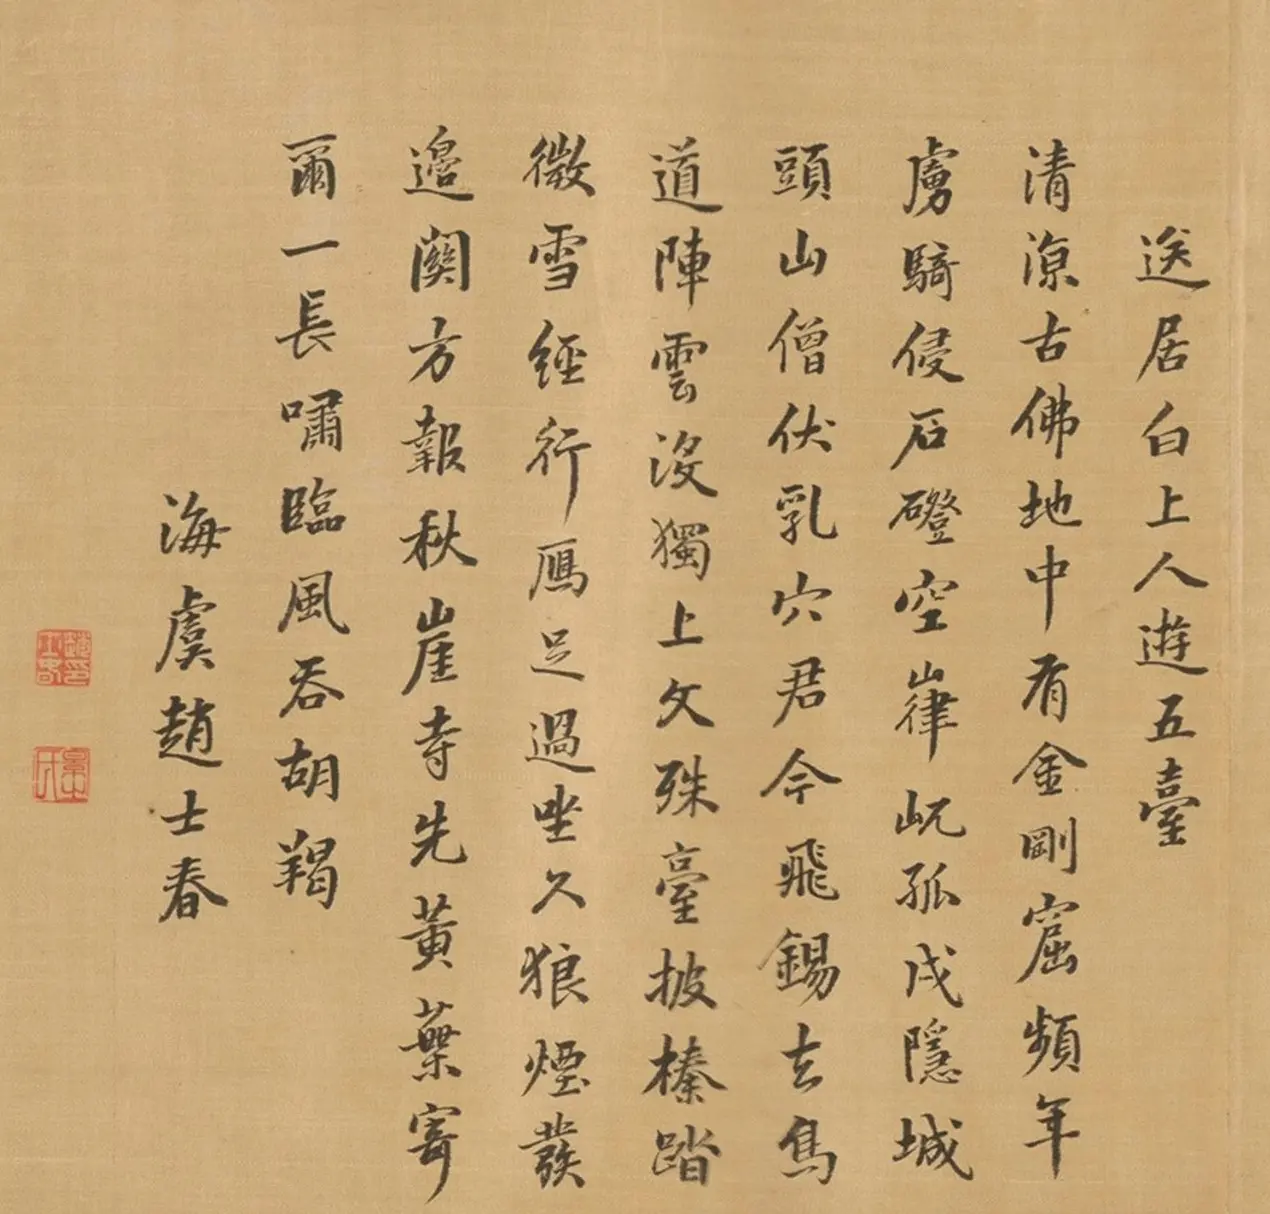 送居白上人遊五臺
清涼古佛地中有金剛窟頻年
虜騎侵石磴空嵂屼孤戍隱城
頭山僧伏乳穴君今飛錫去鳥
道陣雲沒獨上文殊臺披榛踏
微雪經行鴈足過坐久狼煙發
邊關方報秋崖寺先黃葉寄
爾一長嘯臨風吞胡羯
海虞趙士春